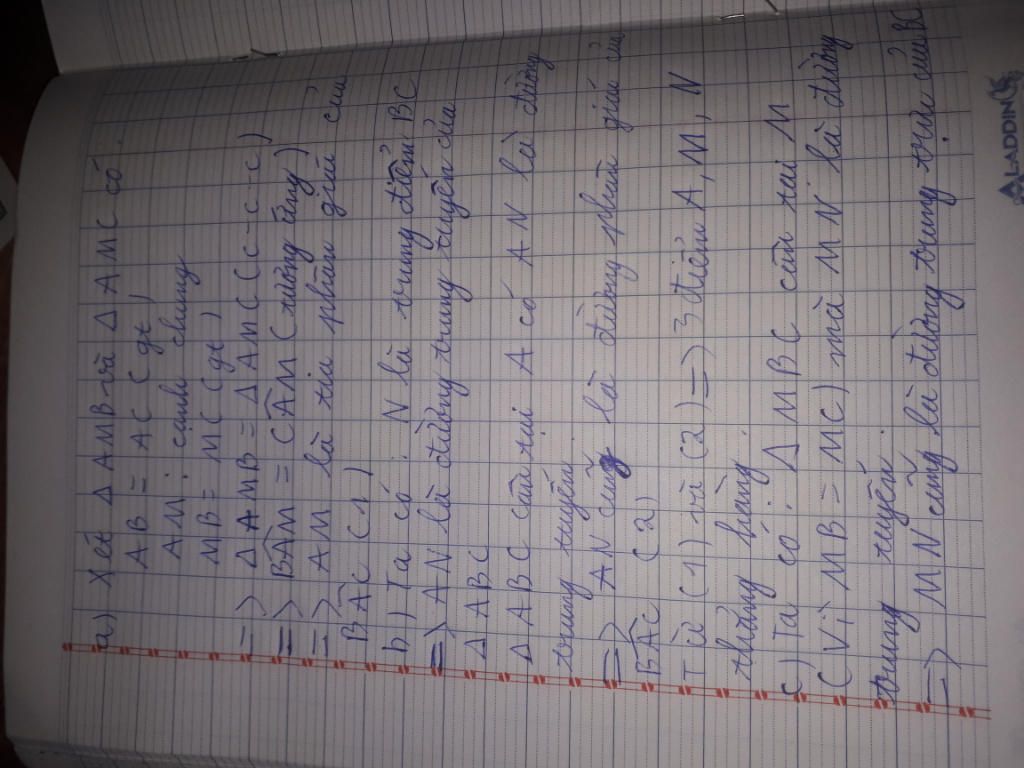 a) Xét Δ AMB và Δ AMC có.
AB = AC (gt)
AM: cạnh chung
MB = MC (gt)
=> Δ AMB = Δ AMC (c-c-c)
=> BÂM = CÂM (tương ứng)
=> AM là tia phân giác của
BÂC (1)
b) Ta có: N là trung điểm BC
=> AN là đường trung tuyến của
Δ ABC
Δ ABC cân tại A có AN là đường
trung tuyến
=> AN cũng là đường phân giác của
BÂC (2)
Từ (1) và (2) => 3 điểm A, M, N
thẳng hàng.
c) Ta có: Δ MBC cân tại M
(Vì MB = MC) mà MN là đường
trung tuyến.
=> MN cũng là đường trung trực của BC
ALADDIN